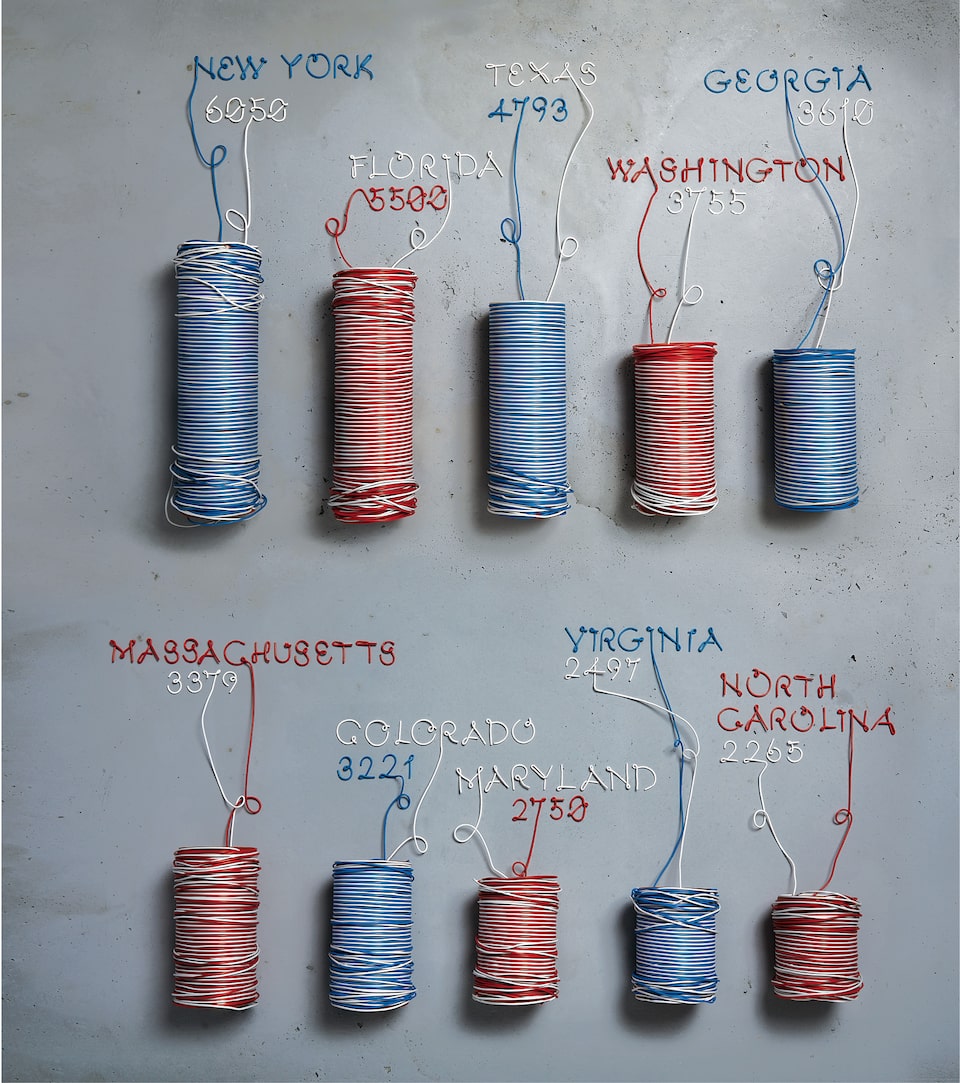 NEW YORK
6050
FLORIDA
5500
TEXAS
4793
WASHINGTON
3755
GEORGIA
3610
MASSACHUSETTS
3379
COLORADO
3221
MARYLAND
2750
VIRGINIA
2497
NORTH
CAROLINA
2265